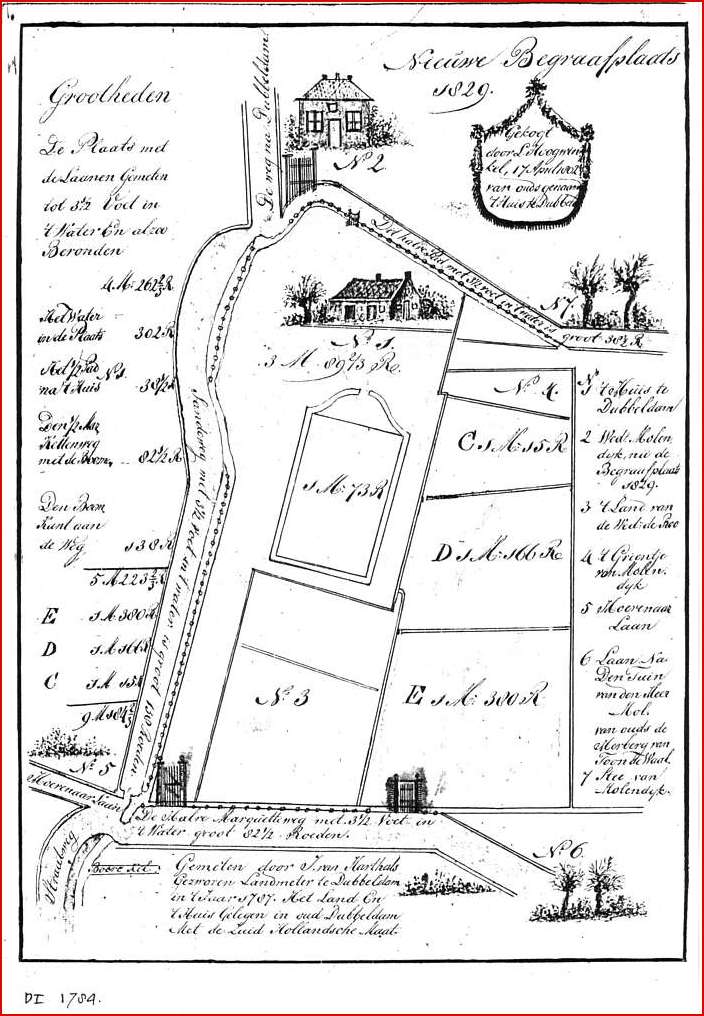 Nieuwe Begraafplaats
1829.
Grootheden
De Plaats met
de Laanen Gemeten
tot 3½ Voet in
't Water En alzoo
Bevonden
4 M: 262⅔ R
Het Water
in de Plaats 302 R
Het ½ Pad
na 't Huis No 1 38½ R
Den ½ Mar
Kettenweg
met de Boome 82½ R
Den Boom
Kant aan
de Weg 138 R
5 M 223⅔ R
E 1 M 380 R
D 1 M 166 R
C 1 M 15 R
9 M 184⅔
De weg na Dubbeldam
No 2
Gekogt
door L. Hoogwin
kel, 17 April 1802
van ouds genaamt
't Huis te Dubbeld
Het halve Pad met 3½ voet in 't water is groot 38½ R
No 7
No 1.
3 M 89⅓ Re.
1 M: 73 R
No 4.
C 1 M: 15 R
D 1 M: 166 Re
E 1 M: 380 R
No 3
Zandeweg met 3½ voet in 't water is groot 130 Roeden
1 't Huis te
Dubbeldam
2 Wed: Molen
dijk, nu de
Begraafplaats
1829.
3 't Land van
de Wed: de Roo
4 't Groentje
van Molen
dijk
5 Moerenaar
Laan
6 Laan Na
Den Tuin
van den Heer
Mol.
van ouds de
Herberg van
Toon de Waal
7 Stee van
Molendijk.
No 5
Moerenaar Laan
De Halve Marquetteweg met 3½ Voet in
't Water groot 82½ Roeden.
No 6.
Straatweg
Gemeten door J. van Harthals
Gezworen Landmeter te Dubbeldam
in 't Jaar 1787. Het Land En
't Huis Gelegen in oud Dubbeldam
Met de Zuid Hollandsche Maat.
DI 1784.